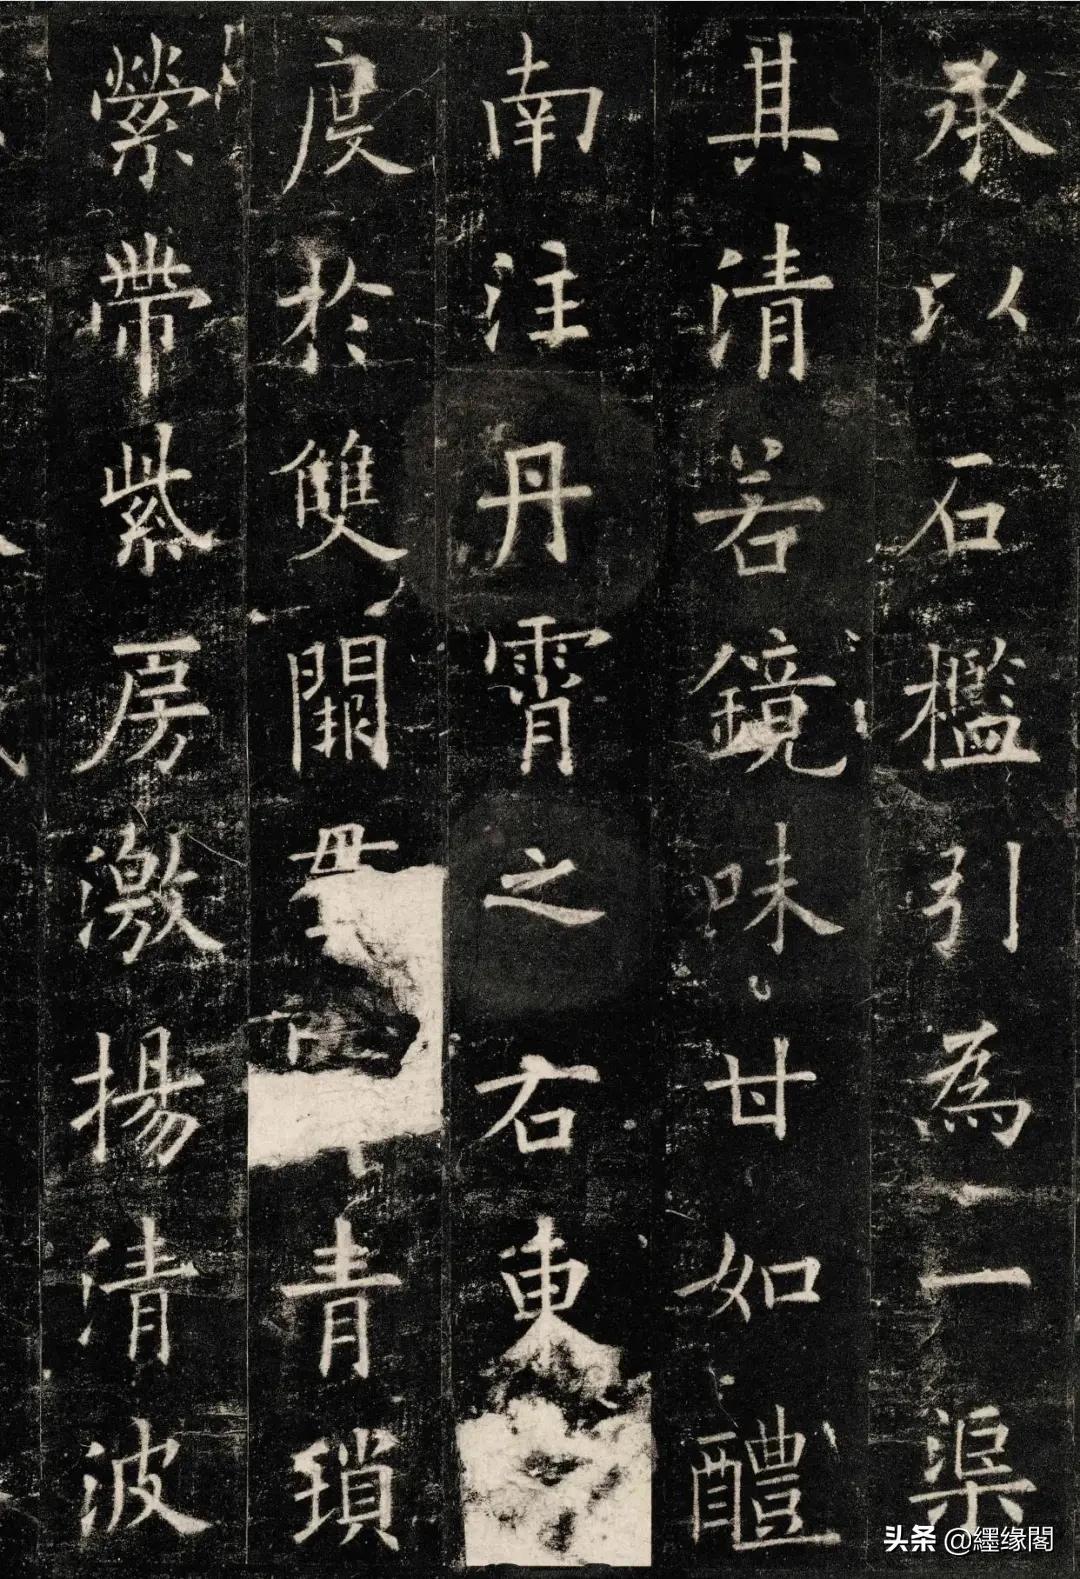 承以石檻引為一渠
其清若鏡味甘如醴
南注丹霄之右東
度於雙闕青瑣
縈帶紫房激揚清波
头条 @纆缘閣